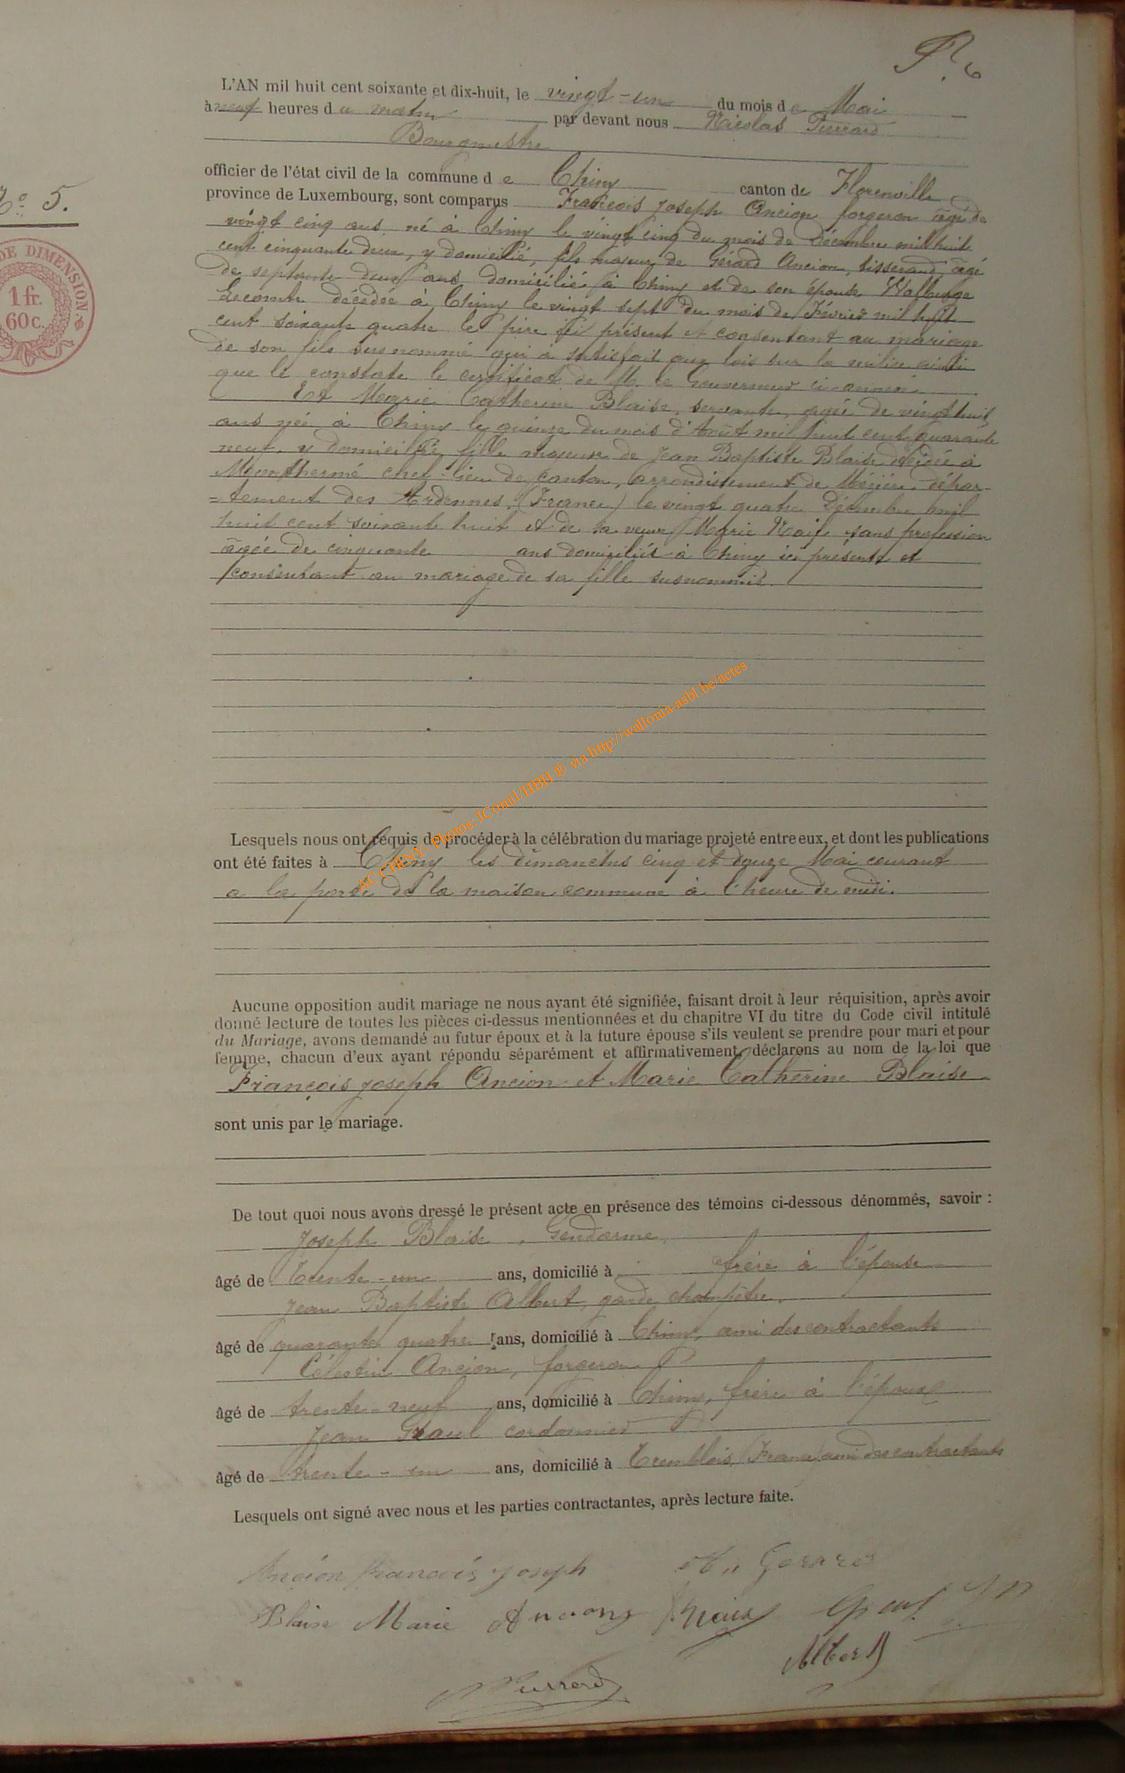 L'AN mil huit cent soixante et dix-huit, le vingt-un du mois de Mai
à neuf heures du matin par devant nous Nicolas Pierrard
Bourgmestre
officier de l'état civil de la commune de Chiny canton de Florenville
No. 5.
province de Luxembourg, sont comparus François Joseph Ancion forgeron âgé de
vingt cinq ans, né à Chiny le vingt cinq du mois de Décembre mil huit
DE DIMENSION
1 fr.
60c.
cent cinquante deux, y domicilié, fils majeur de Gérard Ancion, tisserand, âgé
de septante deux ans, domicilié à Chiny et de son épouse Walburge
Lecomte décédée à Chiny le vingt sept du mois de Février mil huit
cent soixante quatre le père ici présent et consentant au mariage
de son fils susnommé qui a satisfait aux lois sur la milice ainsi
que le constate le certificat de M. le Gouverneur ci-annexé
Et Marie Catherine Blaise, servante, âgée de vingt huit
ans née à Chiny le quinze du mois d'Août mil huit cent quarante
neuf, y domiciliée, fille majeure de Jean Baptiste Blaise décédé à
Monthermé chef lieu de canton, arrondissement de Mézières dépar-
-tement des Ardennes, (France) le vingt quatre Décembre mil
huit cent soixante huit et de sa veuve Marie sans profession
âgée de cinquante ans domiciliée à Chiny ici présente et
consentant au mariage de sa fille susnommée.
AC CHINY Photos JComil/HBH © via http://wallonia-asbl.be/actes
Lesquels nous ont requis de procéder à la célébration du mariage projeté entre eux, et dont les publications
ont été faites à Chiny les dimanches cinq et douze Mai courant
a la porte de la maison commune à l'heure de midi.
Aucune opposition audit mariage ne nous ayant été signifiée, faisant droit à leur réquisition, après avoir
donné lecture de toutes les pièces ci-dessus mentionnées et du chapitre VI du titre du Code civil intitulé
du Mariage, avons demandé au futur époux et à la future épouse s'ils veulent se prendre pour mari et pour
femme, chacun d'eux ayant répondu séparément et affirmativement, déclarons au nom de la loi que
François Joseph Ancion et Marie Catherine Blaise
sont unis par le mariage.
De tout quoi nous avons dressé le présent acte en présence des témoins ci-dessous dénommés, savoir :
Joseph Blaise, Gendarme,
âgé de trente-un ans, domicilié à frère à l'épouse
Jean Baptiste Albert, garde champêtre,
âgé de quarante quatre ans, domicilié à Chiny, ami des contractants
Célestin Ancion, forgeron
âgé de trente-neuf ans, domicilié à Chiny, frère à l'époux
Jean cordonnier
âgé de trente-un ans, domicilié à Tremblois (France) ami des contractants
Lesquels ont signé avec nous et les parties contractantes, après lecture faite.
Ancion francois Joseph
Blaise Marie Ancion
Albert